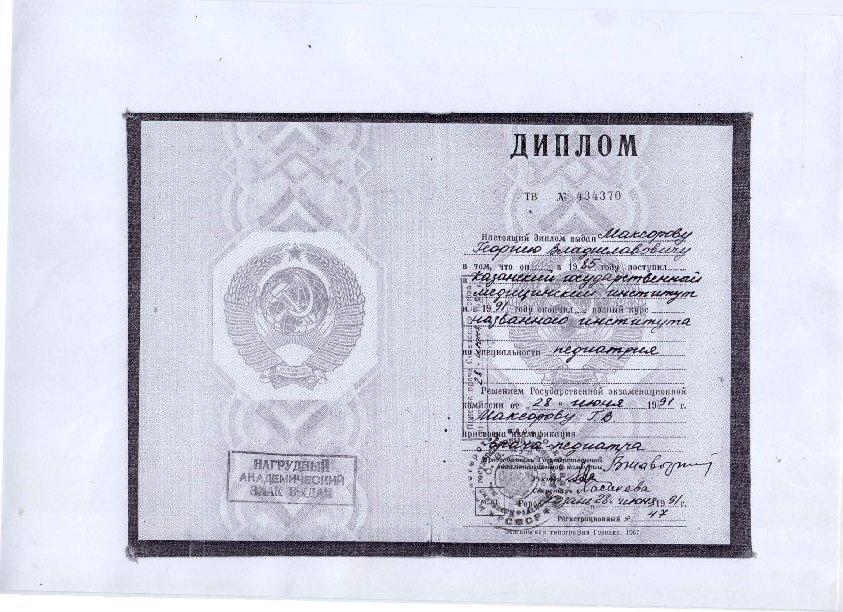 ДИПЛОМ
ТВ № 434370
Настоящий диплом выдан Максорову
Георгию Владиславовичу
в том, что он в 1985 году поступил
в Казанский государственный
медицинский институт
и в 1991 году окончил полный курс
названного института
по специальности педиатрия
Решением Государственной экзаменационной
комиссии от 28 июня 1991 г.
Максорову Г.В
присвоена квалификация
врача-педиатра
Председатель Государственной
экзаменационной комиссии
Ректор
Секретарь
Город Казань 28 июня 1991 г.
Регистрационный № 47
Московская типография Гознака. 1967.
НАГРУДНЫЙ
АКАДЕМИЧЕСКИЙ
ЗНАК ВЫДАН
РСФСР